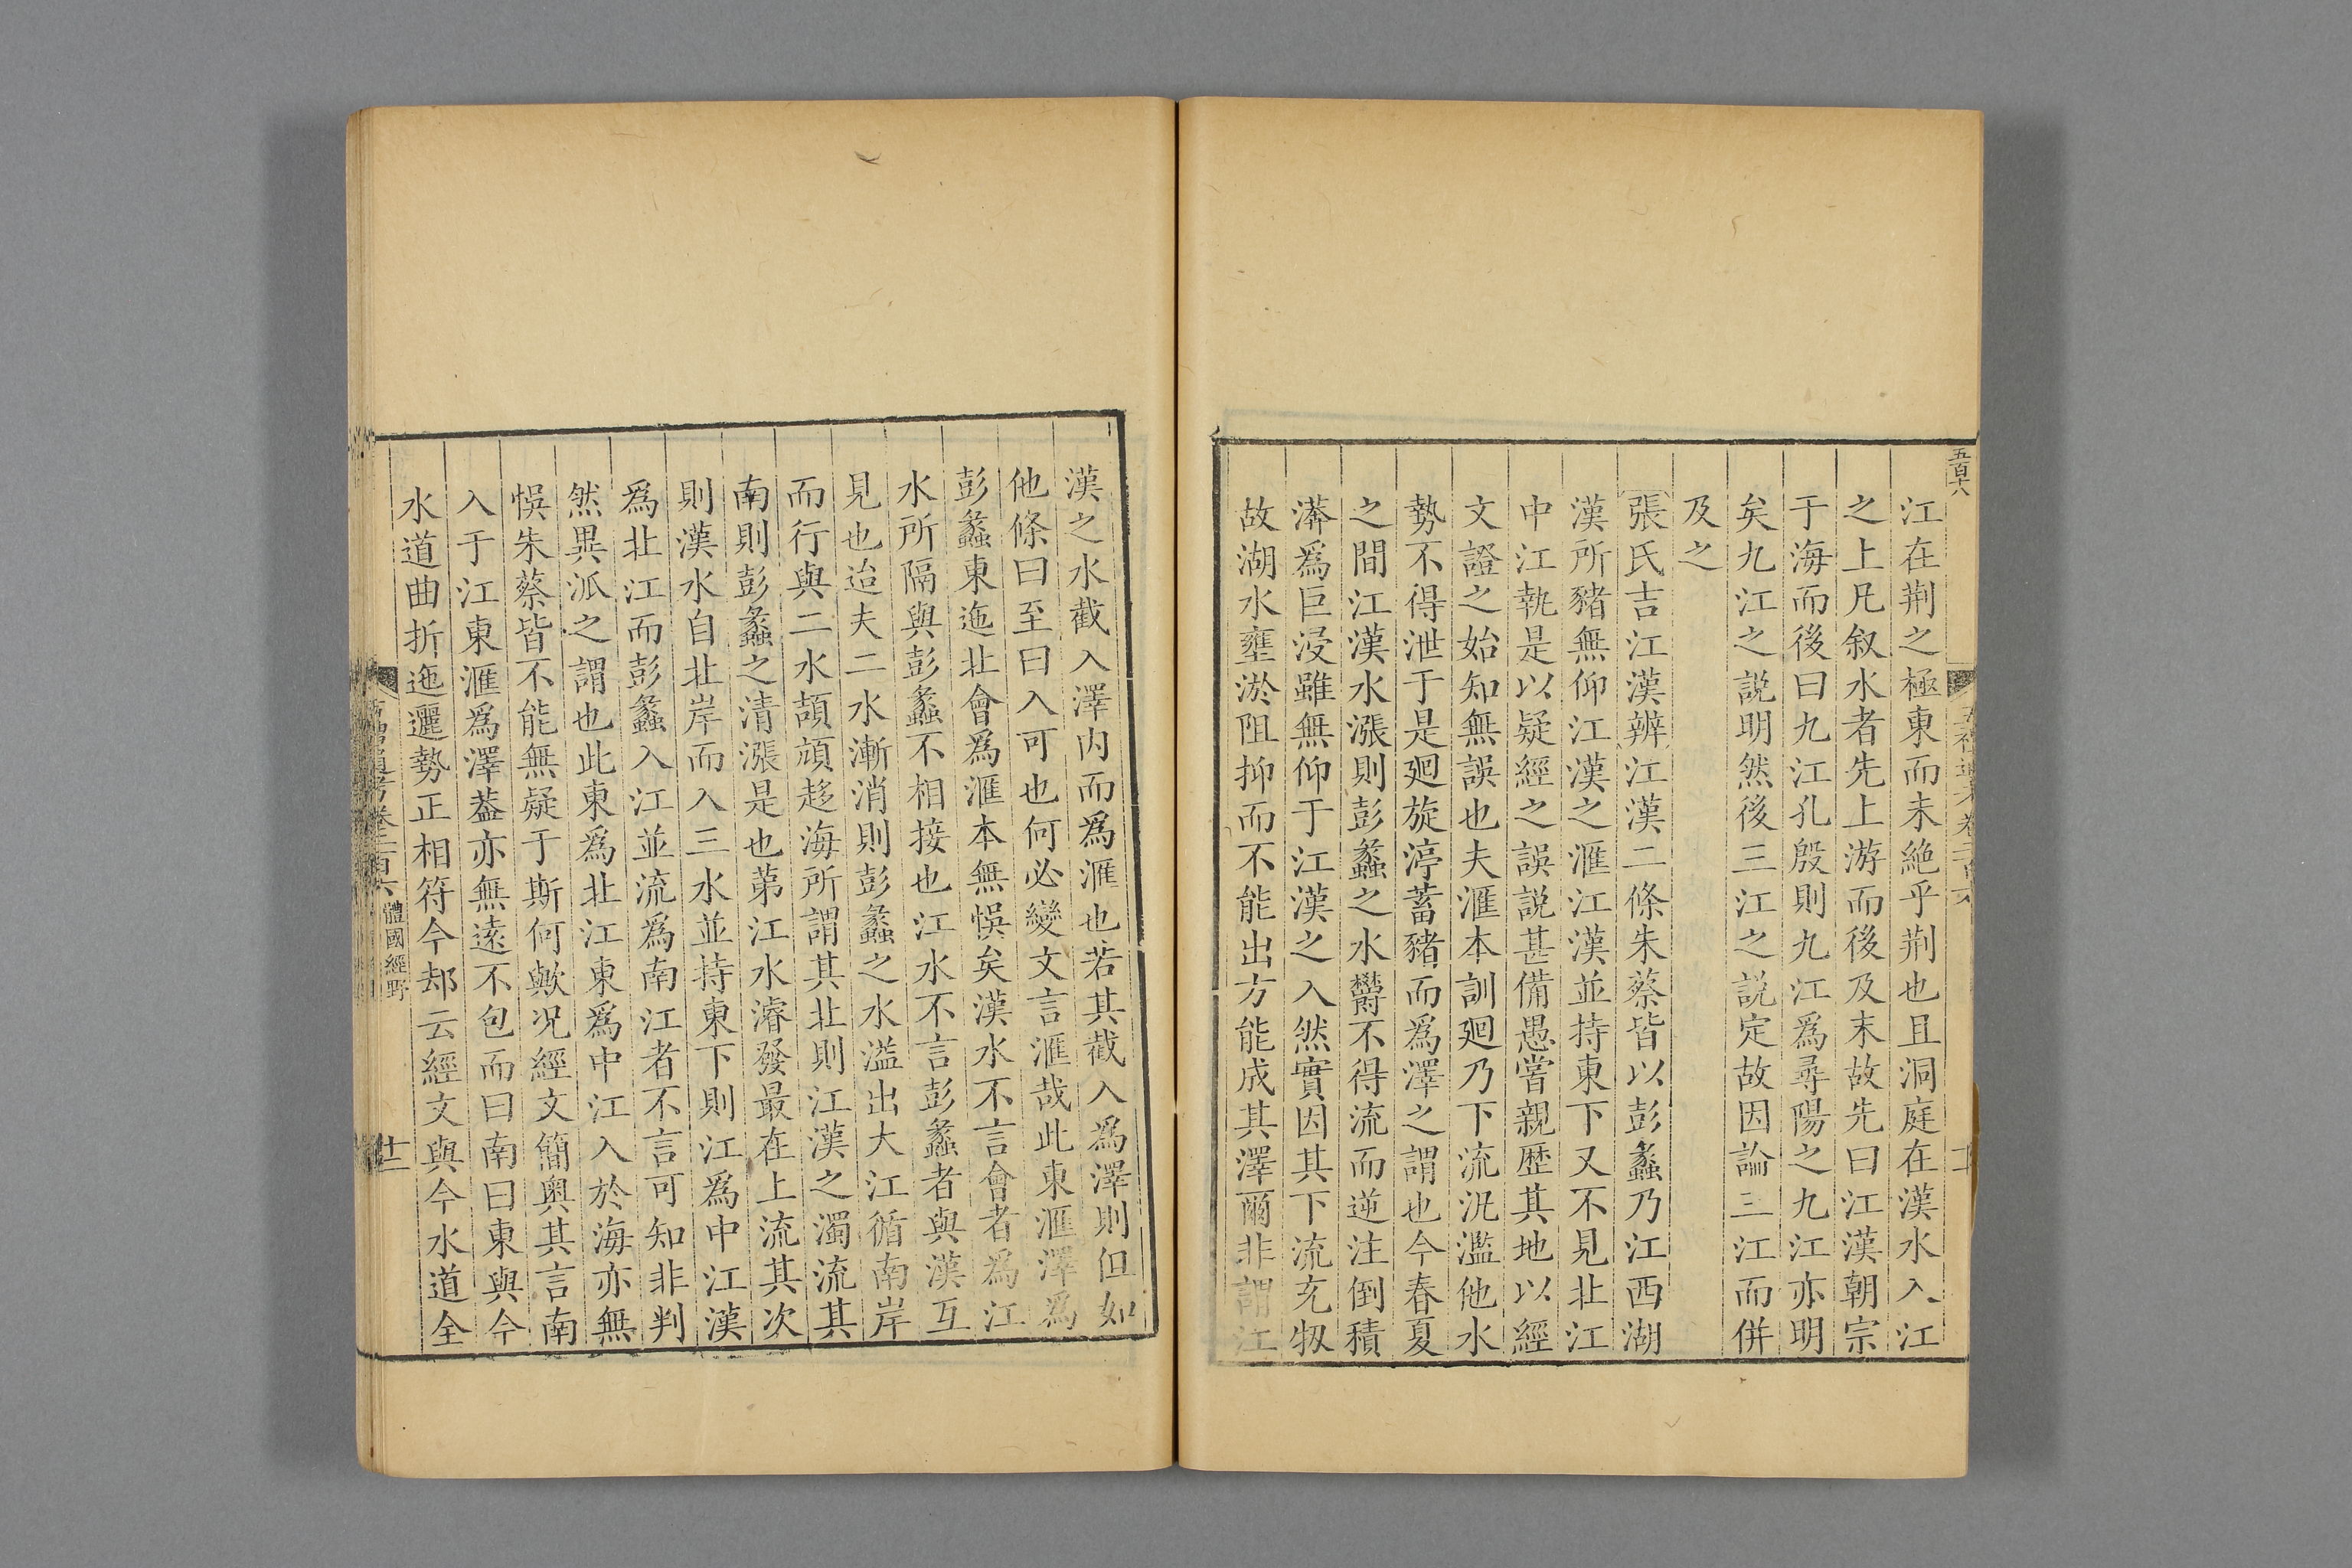 五百十八
江在荆之極東而未絶乎荆也且洞庭在漢水入江
之上凡叙水者先上游而後及末故先曰江漢朝宗
于海而後曰九江孔殷則九江爲尋陽之九江亦明
矣九江之説明然後三江之説定故因論三江而併
及之
張氏吉江漢辨江漢二條朱蔡皆以彭蠡乃江西湖
漢所豬無仰江漢之滙江漢並持東下又不見北江
中江執是以疑經之誤説甚備愚嘗親歴其地以經
文證之始知無誤也夫滙本訓廻乃下流汎濫他水
勢不得泄于是廻旋渟蓄豬而爲澤之謂也今春夏
之間江漢水漲則彭蠡之水欝不得流而逆注倒積
漭爲巨浸雖無仰于江漢之入然實因其下流充牣
故湖水壅淤阻抑而不能出方能成其澤爾非謂江
漢之水截入澤内而爲滙也若其截入爲澤則但如
他條曰至曰入可也何必變文言滙哉此東滙澤爲
彭蠡東迤北會爲滙本無悞矣漢水不言會者爲江
水所隔與彭蠡不相接也江水不言彭蠡者與漢互
見也迨夫二水漸消則彭蠡之水溢出大江循南岸
而行與二水頡頏趍海所謂其北則江漢之濁流其
南則彭蠡之清漲是也第江水濬發最在上流其次
則漢水自北岸而入三水並持東下則江爲中江漢
爲北江而彭蠡入江並流爲南江者不言可知非判
然異派之謂也此東爲北江東爲中江入於海亦無
悞朱蔡皆不能無疑于斯何歟况經文簡奥其言南
入于江東滙爲澤葢亦無遠不包而曰南曰東與今
水道曲折迤邐勢正相符今却云經文與今水道全
體國經野
十二